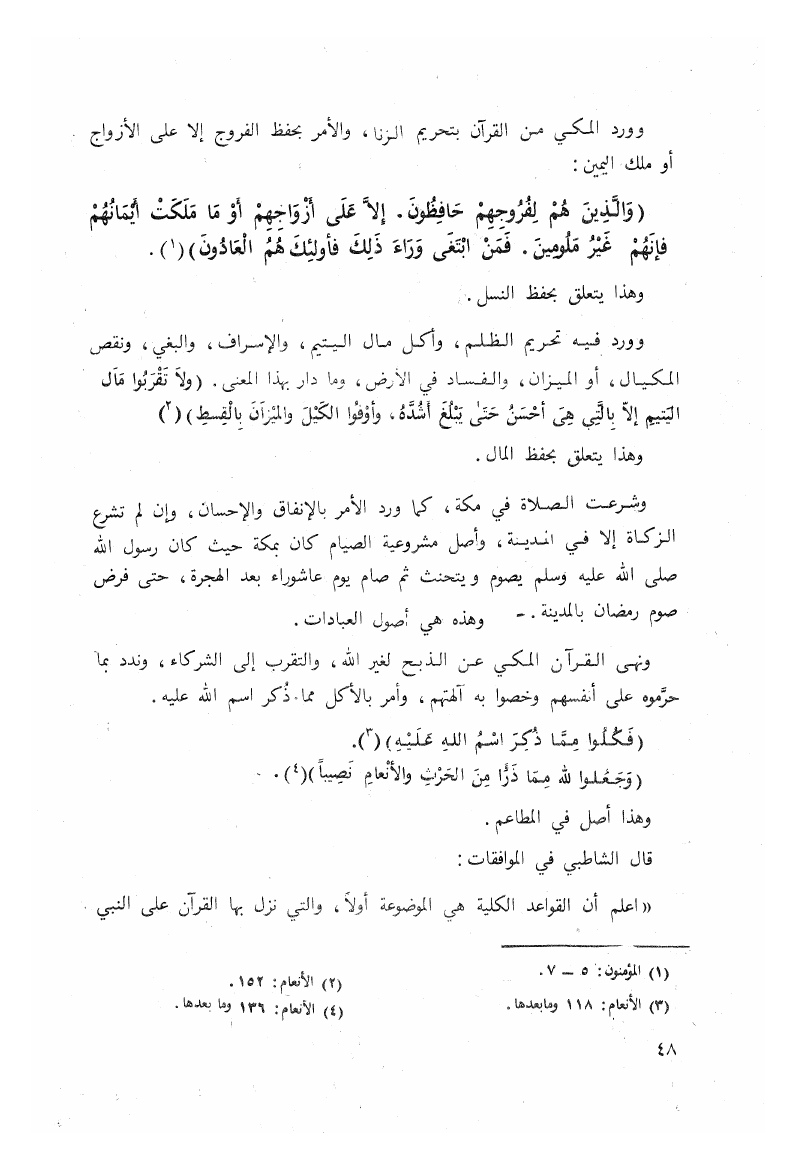 وورد المكي من القرآن بتحريم الزنا، والأمر بحفظ الفروج إلا على الأزواج
أو ملك اليمين:
(وَالَّذِينَ هُمْ لِفُرُوجِهِمْ حَافِظُونَ. إِلاَّ عَلَى أَزْوَاجِهِمْ أَوْ مَا مَلَكَتْ أَيْمَانُهُمْ
فإنَهُمْ غَيْرُ مَلُومِينَ. فَمَنْ ابْتَغَى وَرَاءَ ذَلِكَ فأوليْكَ هُمُ الْعَادُونَ)(١).
وهذا يتعلق بحفظ النسل.
وورد فيه تحريم الظلم، وأكل مال اليتيم، والإسراف، والبغي، ونقص
المكيال، أو الميزان، والفساد في الأرض، وما دار بهذا المعنى. (ولاَ تَقْرَبُوا مَاَل
اليَتيمِ إلاّ بِالَّتِي هِىَ أحْسَنُ حَتَىٰ يَبْلُغَ أَشُدَّهُ، وأوْفُوا الكَيْلَ والمِيْزَاَنَ بِالْقِسطِ)(٢)
وهذا يتعلق بحفظ المال.
وشرعت الصلاة في مكة، كما ورد الأمر بالإنفاق والإحسان، وإن لم تشرع
الزكاة إلا في المدينة، وأصل مشروعية الصيام كان بمكة حيث كان رسول الله
صلى الله عليه وسلم يصوم ويتحنث ثم صام يوم عاشوراء بعد الهجرة، حتى فرض
صوم رمضان بالمدينة. - وهذه هي أصول العبادات.
ونهى القرآن المكي عن الذبح لغير الله، والتقرب إلى الشركاء، وندد بما
حرَّموه على أنفسهم وخصوا به آلهتهم، وأمر بالأكل مما ذُكر اسم الله عليه.
(فَكُلُوا مِمَّا ذُكِرَ اسْمُ اللهِ عَلَيْهِ)(٣).
(وَجَعَلوا لله مِمَا ذَرًا مِنَ الحَرْثِ والأنْعامِ نَصِيباً)(٤).
وهذا أصل في المطاعم.
قال الشاطبي في الموافقات:
«اعلم أن القواعد الكلية هي الموضوعة أولاً، والتي نزل بها القرآن على النبي
(١) المؤمنون: ٥ — ٧.
(٢) الأنعام: ١٥٢.
(٣) الأنعام: ١١٨ ومابعدها.
(٤) الأنعام: ١٣٦ وما بعدها.
٤٨